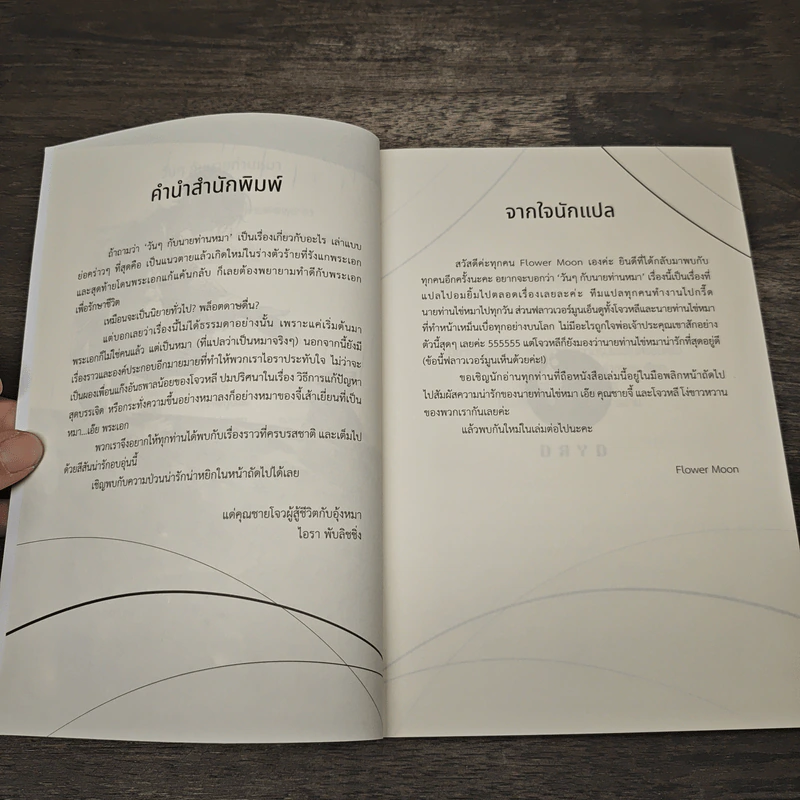 คำนำสำนักพิมพ์
ถ้าถามว่า ‘วันๆ กับนายท่านหมา’ เป็นเรื่องเกี่ยวกับอะไร เล่าแบบ
ย่อคร่าวๆ ที่สุดคือ เป็นแนวตายแล้วเกิดใหม่ในร่างตัวร้ายที่รังแกพระเอก
และสุดท้ายโดนพระเอกแก้แค้นกลับ ก็เลยต้องพยายามทำดีกับพระเอก
เพื่อรักษาชีวิต
เหมือนจะเป็นนิยายทั่วไป? พล็อตดาษดื่น?
แต่บอกเลยว่าเรื่องนี้ไม่ได้ธรรมดาอย่างนั้น เพราะแค่เริ่มต้นมา
พระเอกก็ไม่ใช่คนแล้ว แต่เป็นหมา (ที่แปลว่าเป็นหมาจริงๆ) นอกจากนี้ยังมี
เรื่องราวและองค์ประกอบอีกมายมายที่ทำให้พวกเราไอราประทับใจ ไม่ว่าจะ
เป็นผองเพื่อนแก๊งอันธพาลน้อยของโจวหลี ปมปริศนาในเรื่อง วิธีการแก้ปัญหา
สุดบรรเจิด หรือกระทั่งความขึ้นอย่างหมาลงก็อย่างหมาของจี้เส้าเยี่ยนที่เป็น
หมา...เอ๊ย พระเอก
พวกเราจึงอยากให้ทุกท่านได้พบกับเรื่องราวที่ครบรสชาติ และเต็มไป
ด้วยสีสันน่ารักอบอุ่นนี้
เชิญพบกับความป่วนน่ารักน่าหยิกในหน้าถัดไปได้เลย
แด่คุณชายโจวผู้สู้ชีวิตกับอุ้งหมา
ไอรา พับลิชชิ่ง
จากใจนักแปล
สวัสดีค่ะทุกคน Flower Moon เองค่ะ ยินดีที่ได้กลับมาพบกับ
ทุกคนอีกครั้งนะคะ อยากจะบอกว่า ‘วันๆ กับนายท่านหมา’ เรื่องนี้เป็นเรื่องที่
แปลไปอมยิ้มไปตลอดเรื่องเลยละค่ะ ทีมแปลทุกคนทำงานไปกรี๊ด
นายท่านไข่หมาไปทุกวัน ส่วนฟลาวเวอร์มูนเอ็นดูทั้งโจวหลีและนายท่านไข่หมา
ที่ทำหน้าเหม็นเบื่อทุกอย่างบนโลก ไม่มีอะไรถูกใจพ่อเจ้าประคุณเขาสักอย่าง
ตัวนี้สุดๆ เลยค่ะ 555555 แต่โจวหลีก็ยังมองว่านายท่านไข่หมาน่ารักที่สุดอยู่ดี
(ข้อนี้ฟลาวเวอร์มูนเห็นด้วยค่ะ!)
ขอเชิญนักอ่านทุกท่านที่ถือหนังสือเล่มนี้อยู่ในมือพลิกหน้าถัดไป
ไปสัมผัสความน่ารักของนายท่านไข่หมา เอ๊ย คุณชายจี้ และโจวหลี โง่ขาวหวาน
ของพวกเรากันเลยค่ะ
แล้วพบกันใหม่ในเล่มต่อไปนะคะ
Flower Moon